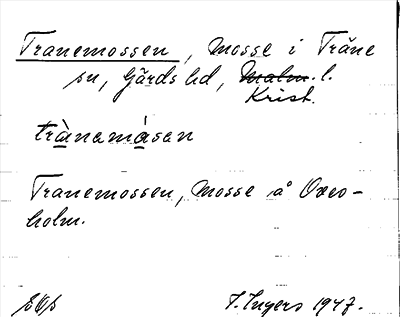 Tranemossen, Mosse i Träne
sn, Gärds hd, Malm. l.
Krist.
trànamåsen
Tranemossen, Mosse å Oxeo-
holm.
I. Ingers 1947.